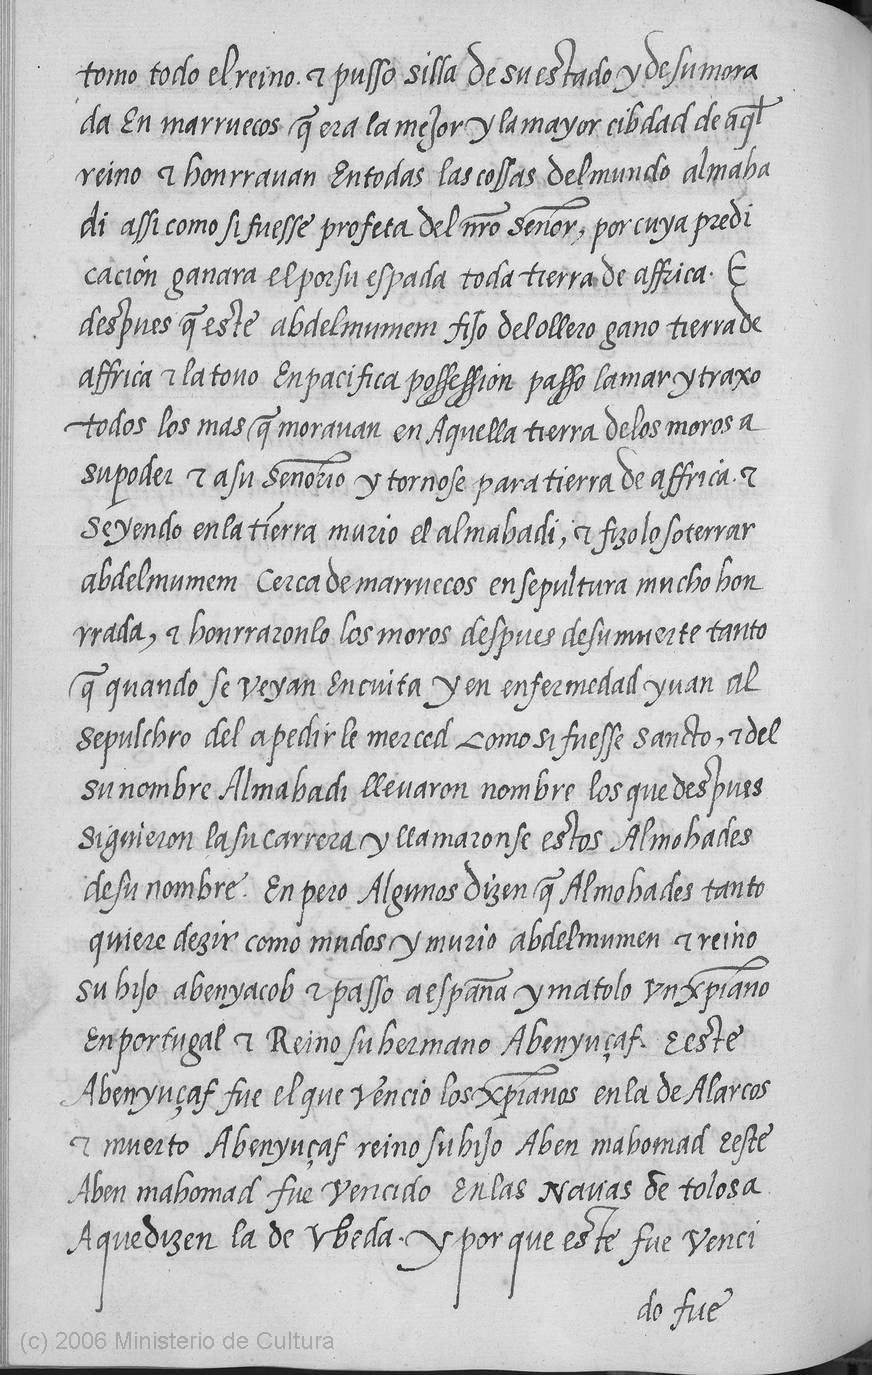 tomo todo el reino. & pusso silla de su estado y de su mora
da En marruecos q̃ era la mejor y la mayor cibdad de aql̃
reino & honrravan En todas las cossas del mundo almaha
di assi como si fuesse profeta del nr̃o Señor, por cuya predi
cación ganara el por su espada toda tierra de affrica. E
despues q̃ este abdelmumem fijo del ollero gano tierra de
affrica & la tovo En pacifica possession passo la mar y traxo
todos los mas q̃ moravan en Aquella tierra de los moros a
su poder & a su Señorio y tornose para tierra de affrica. &
Seyendo en la tierra murio el almahadi, & fizolo soterrar
abdelmumem Cerca de marruecos en sepultura mucho hon
rrada, & honrraronlo los moros despues de su muerte tanto
q̃ quando se veyan En cuita y en enfermedad yuan al
Sepulchro del a pedirle merced como si fuesse Sancto, & del
su nombre Almahadi llevaron nombre los que despues
Siguieron la su carrera y llamaronse estos Almohades
de su nombre. En pero Algunos dizen q̃ Almohades tanto
quiere dezir como mudos y murio abdelmumen & reino
su hijo abenyacob & passo a españa y matolo vn xp̃iano
En portugal & Reino su hermano Abenyuçaf. E este
Abenyuçaf fue el que vencio los xp̃ianos en la de Alarcos
& muerto Abenyuçaf reino su hijo Aben mahomad E este
Aben mahomad fue vencido En las Navas de tolosa
A que dizen la de Vbeda. y por que este fue venci
do fue
(c) 2006 Ministerio de Cultura